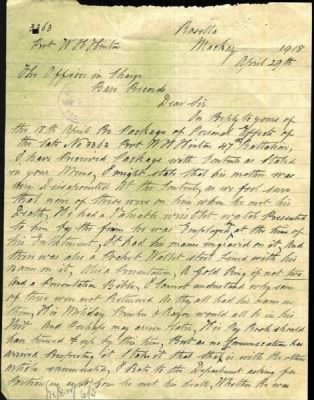 3363
Pvt W H Hinton
Rosella
Mackay 1918
April 29th
The Officer in Charge
Base Records
Dear Sir
In Reply to yours of
the 18th April Re Package of Personal Effects of
the late No 3363 Pvt W H Hinton 47th Battalion,
I have Received Package with Contents as Stated
on your Memo, I might state that his mother was
very Disappointed At the Contents, as we feel sure
that none of these were on him when he met his
Death, He had a wrist watch Presented
to him by the firm he was Employed at the time of
his Enlistment, It had his name engraved on it, And
there was also a Pocket Wallet Lined with his
name on it, also a Presentation, A Gold Ring if not two
And a Presentation Bible, I cannot understand why some
of these were not Returned As they all had his name on
them, His Holiday would all be in his
Kit And Perhaps may arrive later, His Pay Book should
have turned up by this time, But as no has
arrived Respecting it I take it that is with the other
enumerated, I wrote to the Department asking for
he met his death, Whether he was